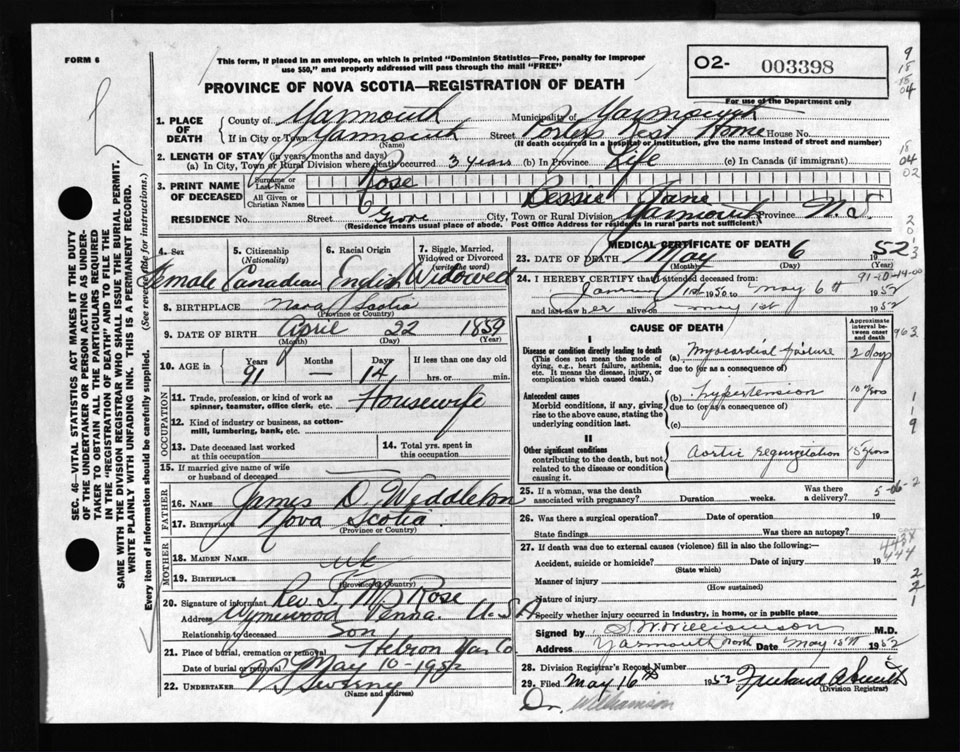 FORM 6
This form, if placed in an envelope, on which is printed "Dominion Statistics—Free, penalty for improper
use $50," and properly addressed will pass through the mail "FREE"
O2- 003398
For use of the Department only
PROVINCE OF NOVA SCOTIA—REGISTRATION OF DEATH
1. PLACE OF DEATH
County of Yarmouth Municipality of Yarmouth
If in City or Town Yarmouth (Name) Street Porters Rest Home House No.
(If death occurred in a hospital or institution, give the name instead of street and number)
2. LENGTH OF STAY (in years, months and days)
(a) In City, Town or Rural Division where death occurred 3 years (b) in Province Life (c) in Canada (if immigrant)
3. PRINT NAME OF DECEASED
Surname or Last Name Rose
All Given or Christian Names Bessie Jane
RESIDENCE No. Street Grove City, Town or Rural Division Yarmouth Province N.S.
(Residence means usual place of abode. Post Office Address for residents in rural parts not sufficient)
4. Sex Female
5. Citizenship (Nationality) Canadian
6. Racial Origin English
7. Single, Married, Widowed or Divorced (write the word) Widowed
8. BIRTHPLACE Nova Scotia
(Province or Country)
9. DATE OF BIRTH April 22 1859
(Month) (Day) (Year)
10. AGE in Years 91 Months — Days 14 If less than one day old hrs. or min.
OCCUPATION
11. Trade, profession, or kind of work as spinner, teamster, office clerk, etc. Housewife
12. Kind of industry or business, as cotton-mill, lumbering, bank, etc.
13. Date deceased last worked at this occupation
14. Total yrs. spent in this occupation
15. If married give name of wife or husband of deceased
FATHER
16. NAME James D. Weddleton
17. BIRTHPLACE Nova Scotia
(Province or Country)
MOTHER
18. MAIDEN NAME uk
19. BIRTHPLACE
(Province or Country)
20. Signature of informant Rev. Rose
Address Wynewood Penna. U.S.A.
Relationship to deceased Son
21. Place of burial, cremation or removal Hebron Yar Co
Date of burial or removal May 10-1952
22. UNDERTAKER Sweeny
(Name and address)
MEDICAL CERTIFICATE OF DEATH
23. DATE OF DEATH May 6 1952
(Month) (Day) (Year)
24. I HEREBY CERTIFY that I attended deceased from:
1st 1950 to May 6th 1952
and last saw her alive on May 1st 1952
CAUSE OF DEATH
Approximate interval between onset and death
I
Disease or condition directly leading to death
(This does not mean the mode of dying, e.g., heart failure, asthenia, etc. It means the disease, injury, or complication which caused death.)
(a) Myocardial failure 2 days
due to (or as a consequence of)
Antecedent causes
Morbid conditions, if any, giving rise to the above cause, stating the underlying condition last.
(b) Hypertension 10 yrs
due to (or as a consequence of)
(c)
II
Other significant conditions
contributing to the death, but not related to the disease or condition causing it.
Aortic regurgitation 15 years
25. If a woman, was the death associated with pregnancy? Duration weeks. Was there a delivery?
26. Was there a surgical operation? Date of operation 19
State findings Was there an autopsy?
27. If death was due to external causes (violence) fill in also the following:
Accident, suicide or homicide? Date of injury 19
(State which)
Manner of injury
(How sustained)
Nature of injury
Specify whether injury occurred in industry, in home, or in public place
Signed by Williamson M.D.
Address Yarmouth North Date May 15th 1952
28. Division Registrar's Record Number
29. Filed May 16th 1952
(Division Registrar)
Dr. Williamson
SEC. 46—VITAL STATISTICS ACT MAKES IT THE DUTY
OF THE UNDERTAKER OR PERSON ACTING AS UNDER-
TAKER TO OBTAIN ALL THE PARTICULARS REQUIRED
IN THE "REGISTRATION OF DEATH" AND TO FILE THE
SAME WITH THE DIVISION REGISTRAR WHO SHALL ISSUE THE BURIAL PERMIT.
WRITE PLAINLY WITH UNFADING INK. THIS IS A PERMANENT RECORD.
Every item of information should be carefully supplied. (See reverse side for instructions.)